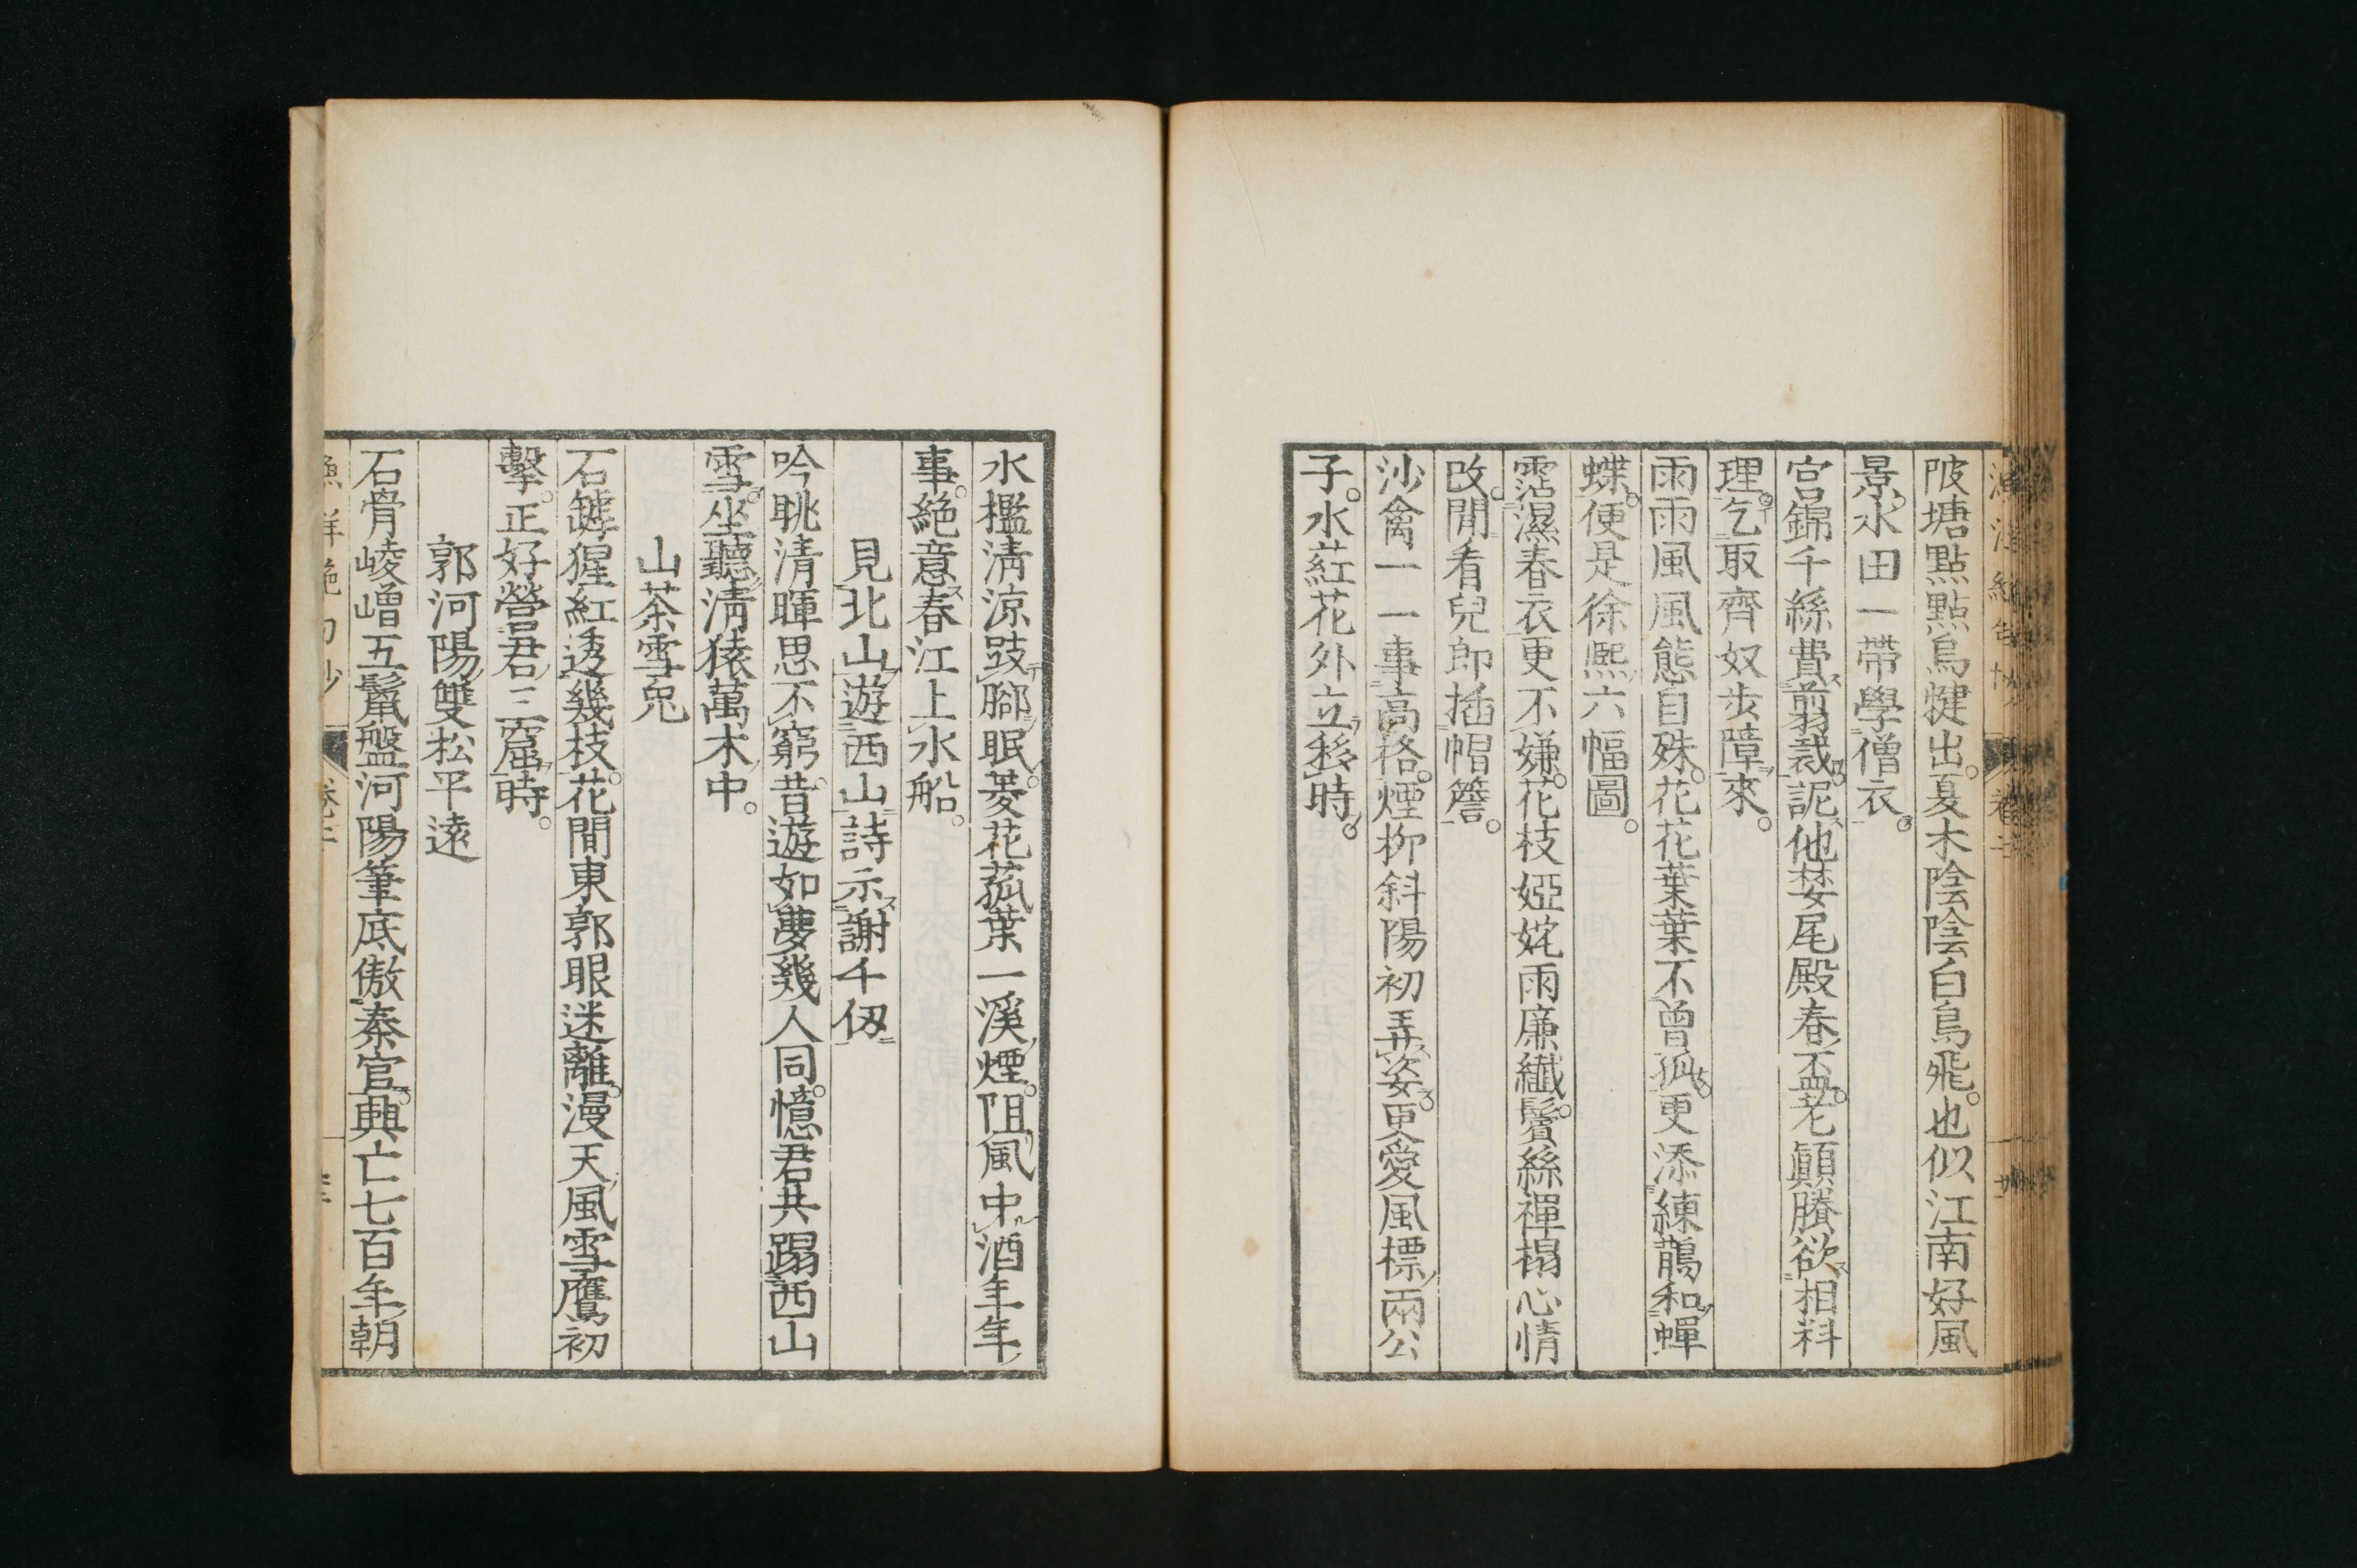 陂塘點點烏犍出。夏木陰陰白鳥飛。也似江南好風
景。水田一帶學僧衣。
宮錦千絲費翦裁。詑他婪尾殿春盃。老顛賸欲相料
理。乞取齊奴步障來。
雨雨風風態自殊。花花葉葉不曾孤。更添練鵲和蟬
蝶。便是徐熙六幅圖。
霑濕春衣更不嫌。花枝婭姹雨廉纖。鬢絲禪榻心情
改。閒看兒郎插帽簷。
沙禽一一事高格。煙柳斜陽初弄姿。更愛風標兩公
子。水葒花外立移時。
水檻淸涼跂腳眠。菱花菰葉一溪煙。阻風中酒年年
事。絕意春江上水船。
見北山遊西山詩示謝千仭
吟眺清暉思不窮。昔遊如夢幾人同。憶君共蹋西山
雪。坐聽淸猿萬木中。
山茶雪兎
石罅猩紅透幾枝。花間東郭眼迷離。漫天風雪鷹初
擊。正好營君三窟時。
郭河陽雙松平遠
石骨崚嶒五鬣盤河陽筆底傲秦官。興亡七百年朝
漁洋絕句抄 卷二